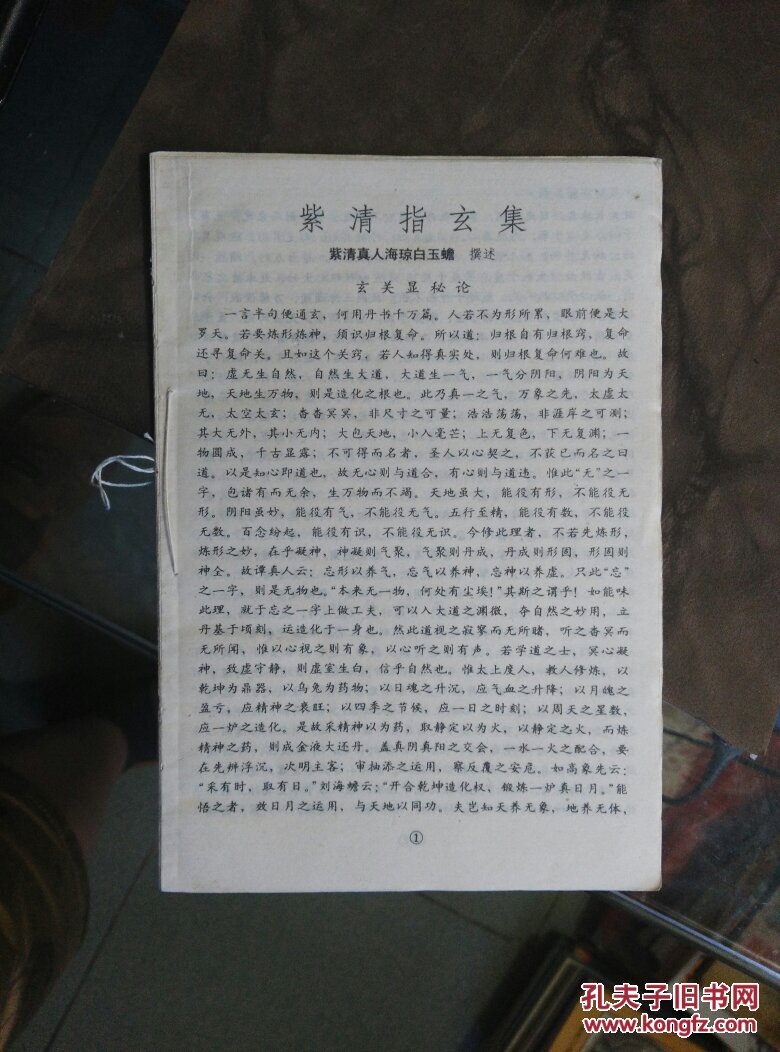 紫清指玄集
紫清真人海琼白玉蟾 撰述
玄关显秘论
一言半句便通玄，何用丹书千万篇。人若不为形所累，眼前便是大
罗天。若要炼形炼神，须识归根复命。所以道：归根自有归根窍，复命
还寻复命关。且如这个关窍，若人知得真实处，则归根复命何难也。故
曰：虚无生自然，自然生大道，大道生一气，一气分阴阳，阴阳为天
地，天地生万物，则是造化之根也。此乃真一之气，万象之先，太虚太
无，太空太玄；杳杳冥冥，非尺寸之可量；浩浩荡荡，非涯岸之可测；
其大无外，其小无内；大包天地，小入毫芒；上无复色，下无复渊；一
物圆成，千古显露；不可得而名者，圣人以心契之，不获已而名之曰
道。以是知心即道也，故无心则与道合，有心则与道违。惟此“无”之一
字，包诸有而无余，生万物而不竭。天地虽大，能役有形，不能役无
形。阴阳虽妙，能役有气，不能役无气。五行至精，能役有数，不能役
无数。百念纷起，能役有识，不能役无识。今修此理者，不若先炼形，
炼形之妙，在乎凝神，神凝则气聚，气聚则丹成，丹成则形固，形固则
神全。故谭真人云：忘形以养气，忘气以养神，忘神以养虚。只此“忘”
之一字，则是无物也。“本来无一物，何处有尘埃！”其斯之谓乎！如能味
此理，就于忘之一字上做工夫，可以入大道之渊微，夺自然之妙用，立
丹基于顷刻，运造化于一身也。然此道视之寂寥而无所睹，听之杳冥而
无所闻，惟以心视之则有象，以心听之则有声。若学道之士，冥心凝
神，致虚守静，则虚室生白，信乎自然也。惟太上度人，教人修炼，以
乾坤为鼎器，以乌兔为药物；以日魂之升沉，应气血之升降；以月魄之
盈亏，应精神之衰旺；以四季之节候，应一日之时刻；以周天之星数，
应一炉之造化。是故采精神以为药，取静定以为火，以静定之火，而炼
精神之药，则成金液大还丹。盖真阴真阳之交会，一水一火之配合，要
在先辨浮沉，次明主客；审抽添之运用，察反覆之安危。如高象先云：
“采有时，取有日。”刘海蟾云：“开合乾坤造化权，锻炼一炉真日月。”能
悟之者，效日月之运用，与天地以同功。夫岂知天养无象，地养无体，
①
孔夫子旧书网
www.kongfz.com